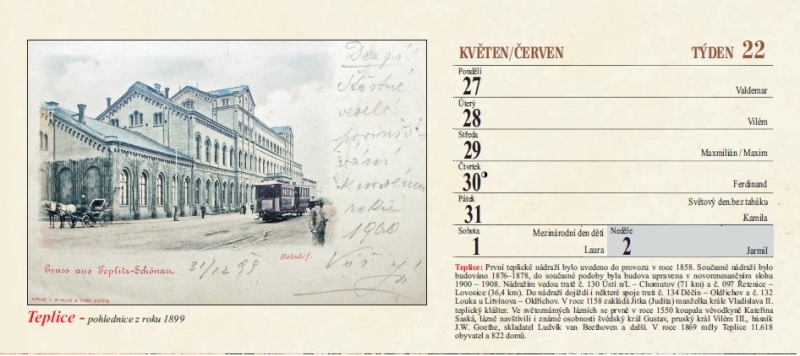 Drazí!
Šťastné
veselé
roku
1900
Bahnhof.
Gruss aus Teplitz-Schönau.
31/12 99
Teplice - pohlednice z roku 1899
KVĚTEN/ČERVEN TÝDEN 22
Pondělí
27 Valdemar
Úterý
28 Vilém
Středa
29 Maxmilián / Maxim
Čtvrtek
30 Ferdinand
Pátek Světový den bez tabáku
31 Kamila
Sobota Mezinárodní den dětí Neděle
1 Laura 2 Jarmil
Teplice: První teplické nádraží bylo uvedeno do provozu v roce 1858. Současné nádraží bylo
budováno 1876–1878, do současné podoby byla budova upravena v novorenesančním slohu
1900 – 1908. Nádražím vedou tratě č. 130 Ústí n/L – Chomutov (71 km) a č. 097 Řetenice –
Lovosice (36,4 km). Do nádraží dojíždí i některé spoje trati č. 134 Děčín – Oldřichov a č. 132
Louka u Litvínova – Oldřichov. V roce 1158 zakládá Jitka (Judita) manželka krále Vladislava II.
teplický klášter. Ve světoznámých lázních se prvně v roce 1550 koupala vévodkyně Kateřina
Saská, lázně navštívili i známé osobnosti švédský král Gustav, pruský král Vilém III., básník
J.W. Goethe, skladatel Ludvík van Beethoven a další. V roce 1869 měly Teplice 11.618
obyvatel a 822 domů.